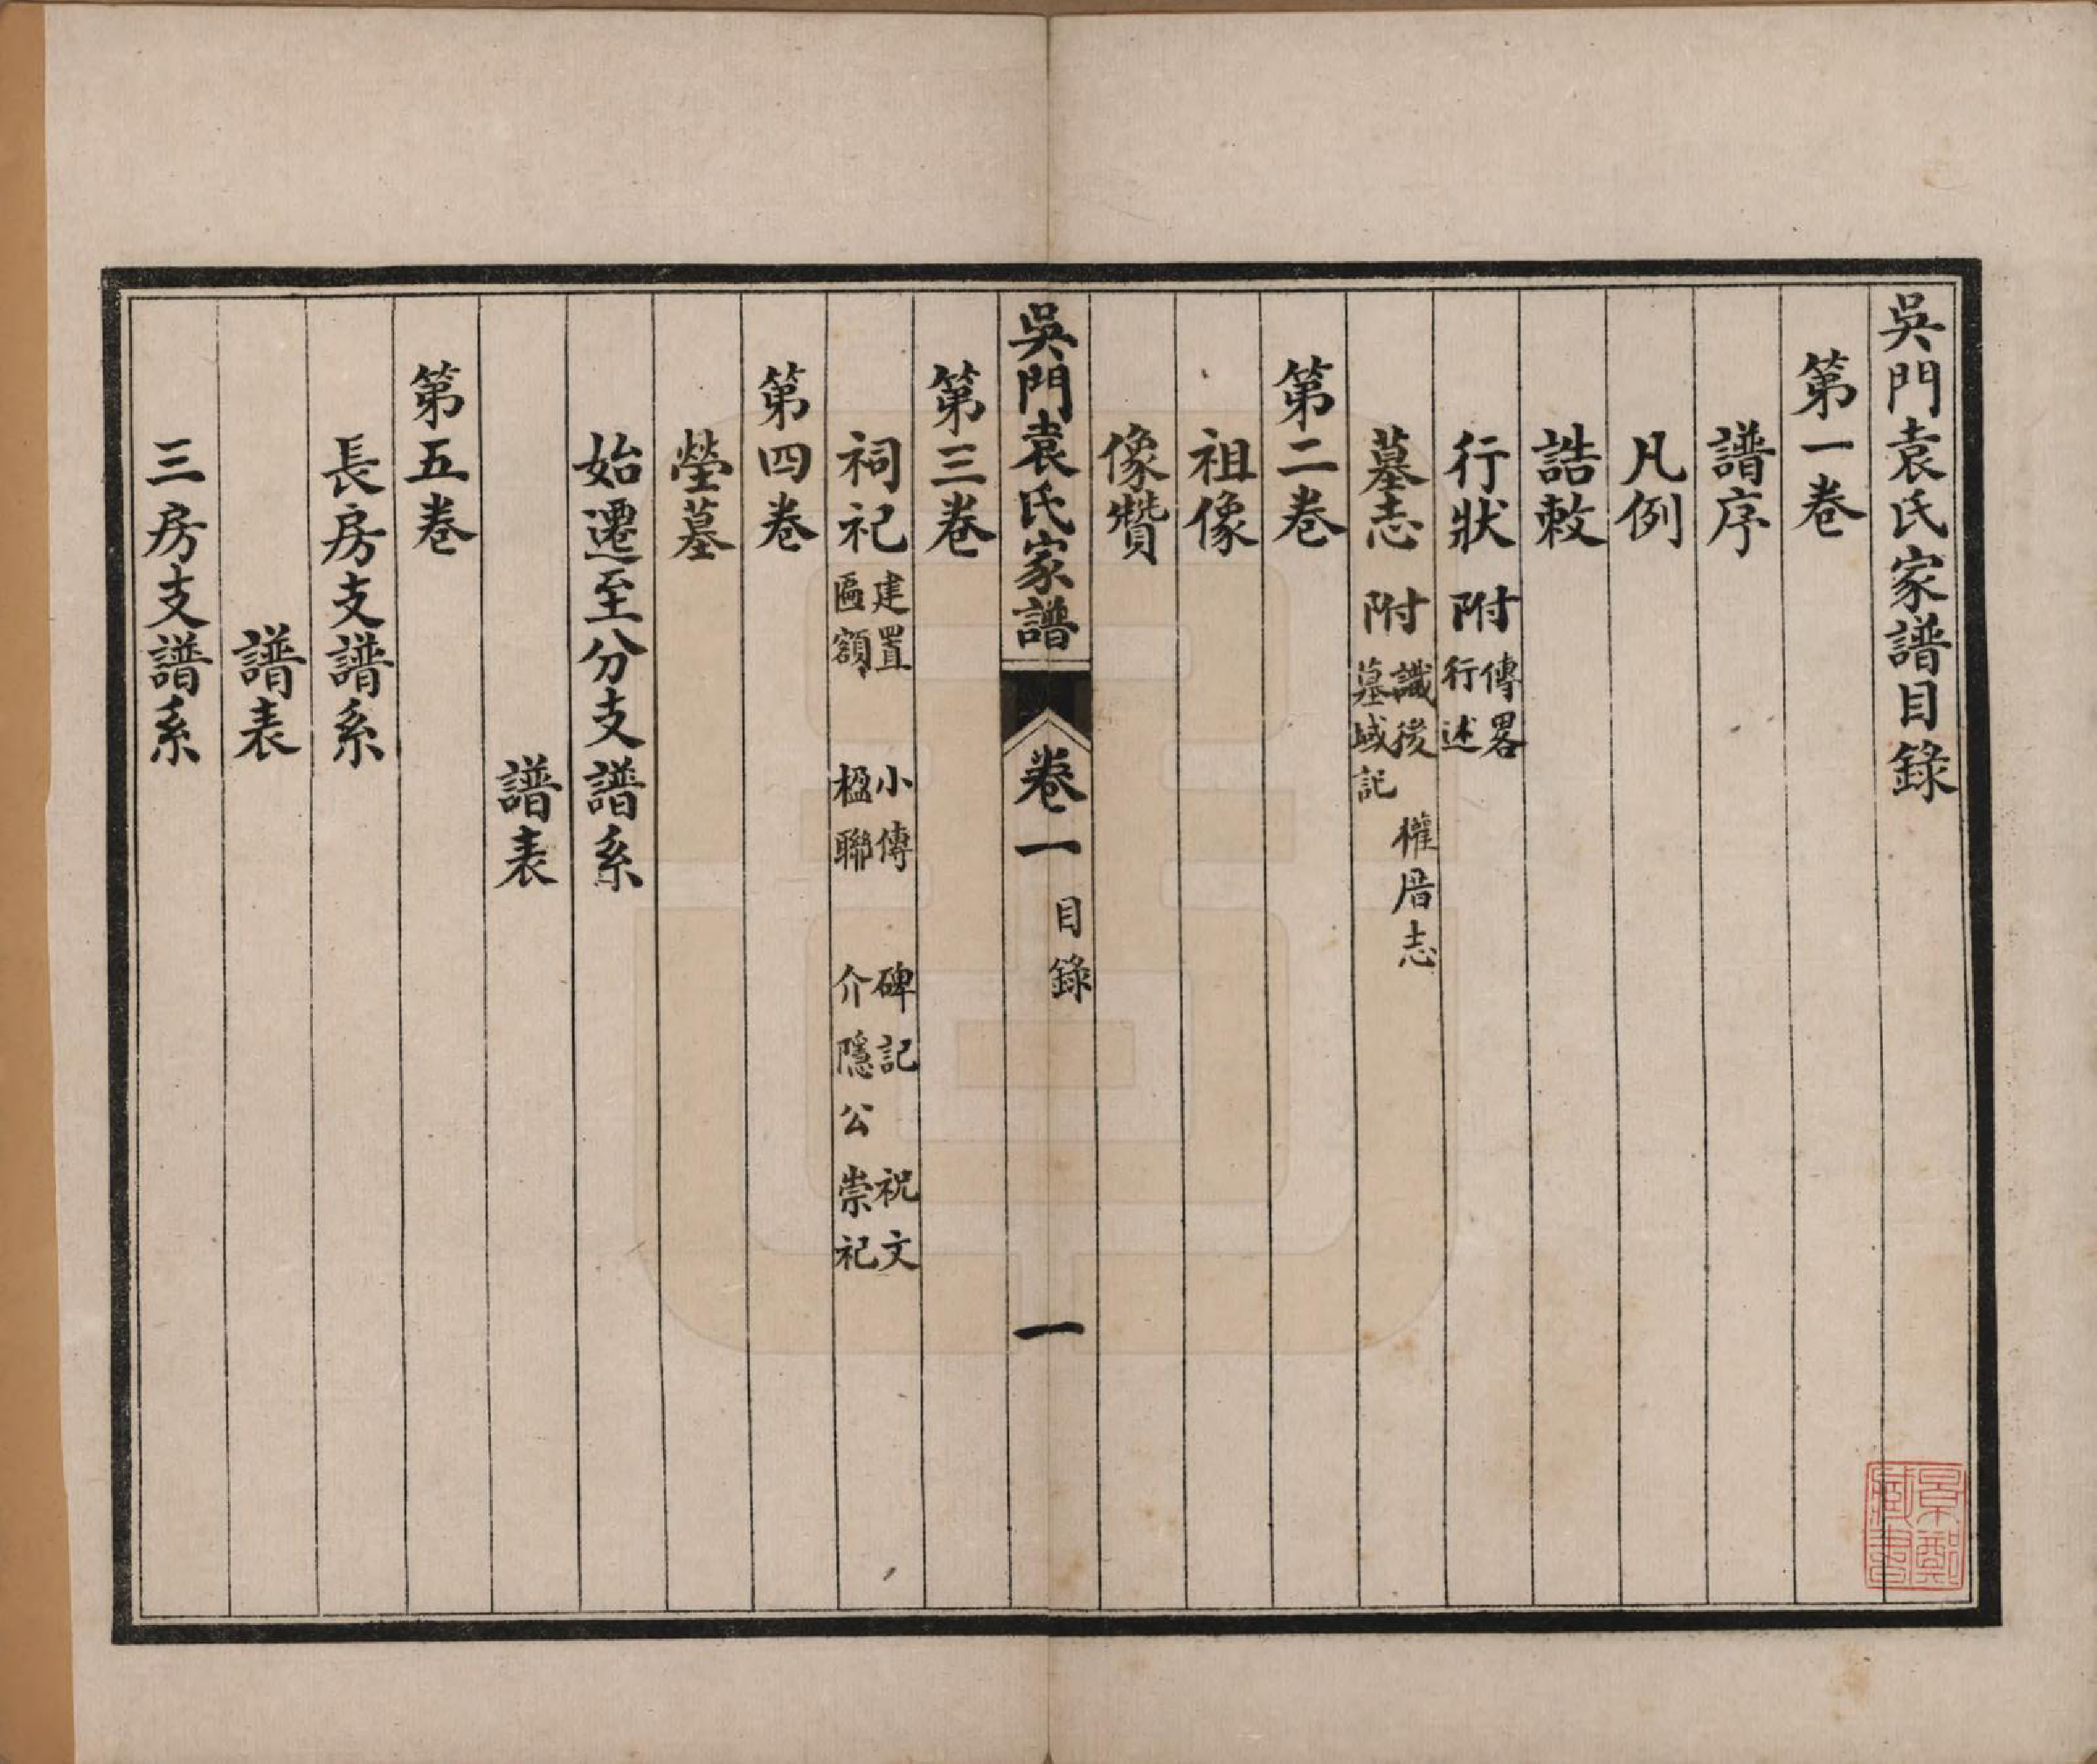 吳門袁氏家譜目錄
第一卷
譜序
凡例
誥敕
行狀 附 傳畧 行述
墓志 附 識後 權厝志 墓域記
第二卷
祖像
像贊
吳門袁氏家譜 卷一 目錄 一
第三卷
祠祀 建置 小傳 碑記 祝文 匾額 楹聯 介隱公崇祀
第四卷
塋墓
始遷至分支譜系
譜表
第五卷
長房支譜系
譜表
三房支譜系
景鄭藏書